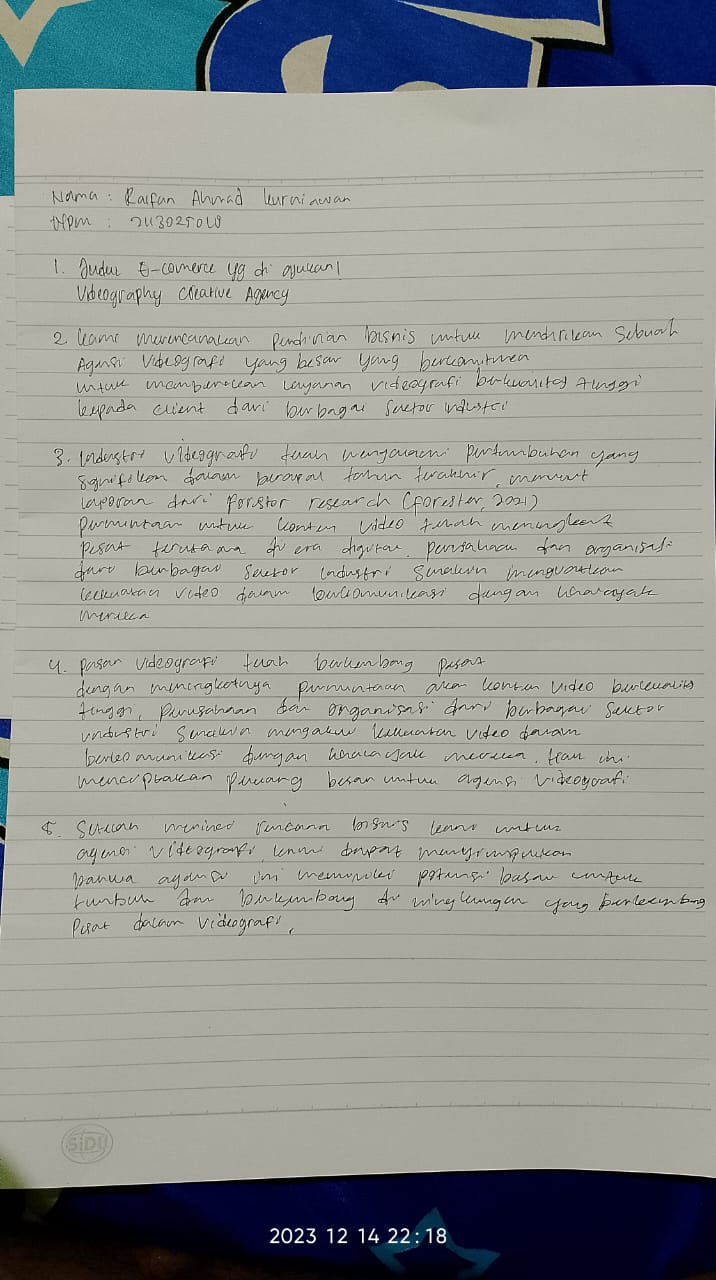 Nama : Raifan Ahmad Kurniawan
NPM : 2113025018
1. Judul E-comerce yg di ajukan!
Videography Creative Agency
2. Kami merencanakan pendirian bisnis untuk mendirikan sebuah
Agensi Videografi yang besar yang berkomitmen
untuk memberikan layanan videografi berkualitas tinggi
kepada client dari berbagai sektor industri
3. Industri videografi telah mengalami pertumbuhan yang
signifikan dalam beberapa tahun terakhir, menurut
laporan dari forstor research (forester, 2021)
permintaan untuk konten video telah meningkat
pesat terutama di era digital. perusahaan dan organisasi
dari berbagai sektor industri semakin menguatkan
kekuatan video dalam berkomunikasi dengan khalayak
mereka
4. pasar videografi telah berkembang pesat
dengan meningkatnya permintaan akan konten video berkualitas
tinggi, perusahaan dan organisasi dari berbagai sektor
industri semakin mengakui kekuatan video dalam
berkomunikasi dengan khalayak mereka. Hal ini
menciptakan peluang besar untuk agensi videografi
5. Setelah merinci rencana bisnis kami untuk
agensi videografi, kami dapat menyimpulkan
bahwa agensi ini memiliki potensi besar untuk
tumbuh dan berkembang di lingkungan yang berkembang
Pesat dalam videografi,
SiDU
2023 12 14 22:18